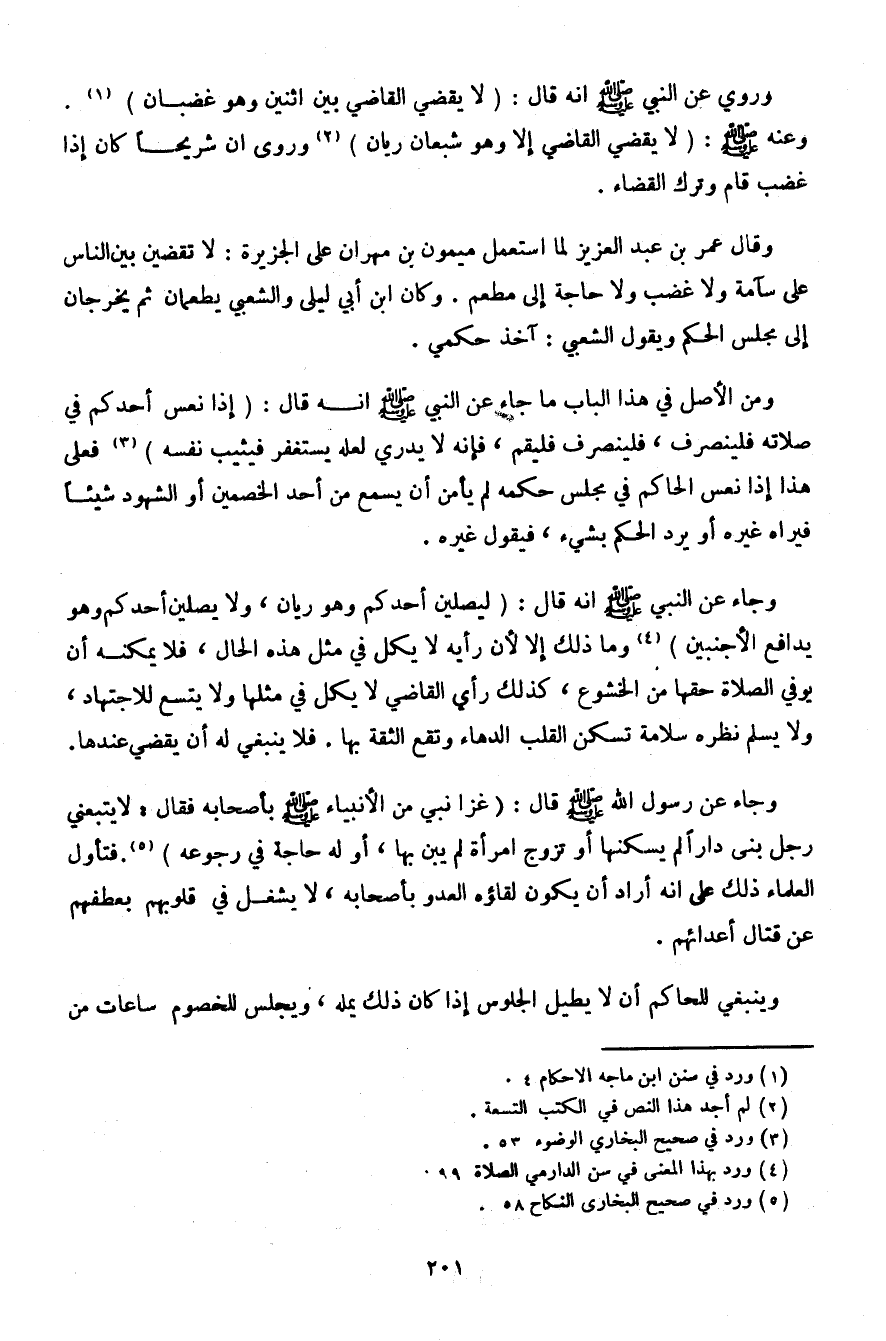 وروي عن النبي ﷺ انه قال : ( لا يقضي القاضي بين اثنين وهو غضبـان ) (١) .
وعنه ﷺ : ( لا يقضي القاضي إلا وهو شبعان ريان ) (٢) وروى ان شريحـاً كان إذا
غضب قام وترك القضاء .
وقال عمر بن عبد العزيز لما استعمل ميمون بن مهران على الجزيرة : لا تقضين بين الناس
على سآمة ولا غضب ولا حاجة إلى مطعم . وكان ابن أبي ليلى والشعبي يطعمان ثم يخرجان
إلى مجلس الحكم ويقول الشعبي : آخذ حكمي .
ومن الأصل في هذا الباب ما جاء عن النبي ﷺ انـه قال : ( إذا نعس أحدكم في
صلاته فلينصرف ، فلينصرف فليقم ، فإنه لا يدري لعله يستغفر فيثيب نفسه ) (٣) فعلى
هذا إذا نعس الحاكم في مجلس حكمه لم يأمن أن يسمع من أحد الخصمين أو الشهود شيئـاً
فيراه غيره أو يرد الحكم بشيء ، فيقول غيره .
وجاء عن النبي ﷺ انه قال : ( ليصلين أحدكم وهو ريان ، ولا يصلين أحدكم وهو
يدافع الأجنبين ) (٤) وما ذلك إلا لأن رأيه لا يكل في مثل هذه الحال ، فلا يمكنـه أن
يوفي الصلاة حقها من الخشوع ، كذلك رأي القاضي لا يكل في مثلها ولا يتسع للاجتهاد ،
ولا يسلم نظره سلامة تسكن القلب الدهاء وتقع الثقة بها . فلا ينبغي له أن يقضي عندها.
وجاء عن رسول الله ﷺ قال : ( غزا نبي من الأنبياء ﷺ بأصحابه فقال : لا يتبعني
رجل بنى داراً لم يسكنها أو تزوج امرأة لم يبن بها ، أو له حاجة في رجوعه ) (٥). فتأول
العلماء ذلك على انه أراد أن يكون لقاؤه العدو بأصحابه ، لا يشغـل في قلوبهم بعطفهم
عن قتال أعدائهم .
وينبغي للحاكم أن لا يطيل الجلوس إذا كان ذلك يمله ، ويجلس للخصوم ساعات من
(١) ورد في سنن ابن ماجه الاحكام ٤ .
(٢) لم أجد هذا النص في الكتب التسعة .
(٣) ورد في صحيح البخاري الوضوء ٥٣ .
(٤) ورد بهذا المعنى في سن الدارمي الصلاة ٩٩ .
(٥) ورد في صحيح البخارى النكاح ٥٨ .
٢٠١